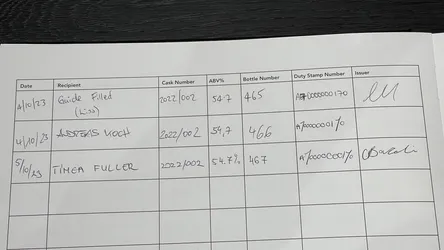 Date Recipient Cask Number ABV% Bottle Number Duty Stamp Number Issuer
4/10/23 Guide Filled 2022/002 54.7 465
(Liss)
4/10/23 ANDREAS KOCH 2022/002 54,7 466 A70000000170
5/10/23 TIMEA FULLER 2022/002 54.7% 467